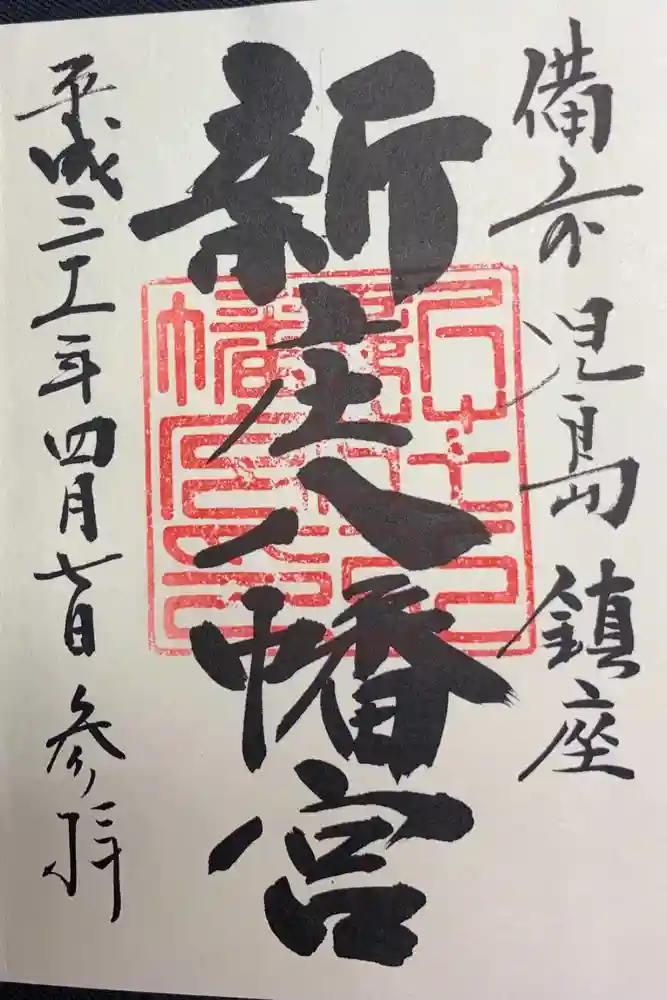 備前児島鎮座
新庄八幡宮
平成三十一年四月七日参拝